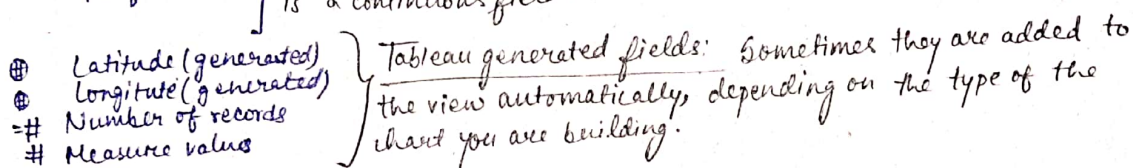 is a continuous fie
Latitude (generated)
Longitute (generated)
=# Number of records
# Measure values
Tableau generated fields: Sometimes they are added to
the view automatically, depending on the type of the
chart you are building.